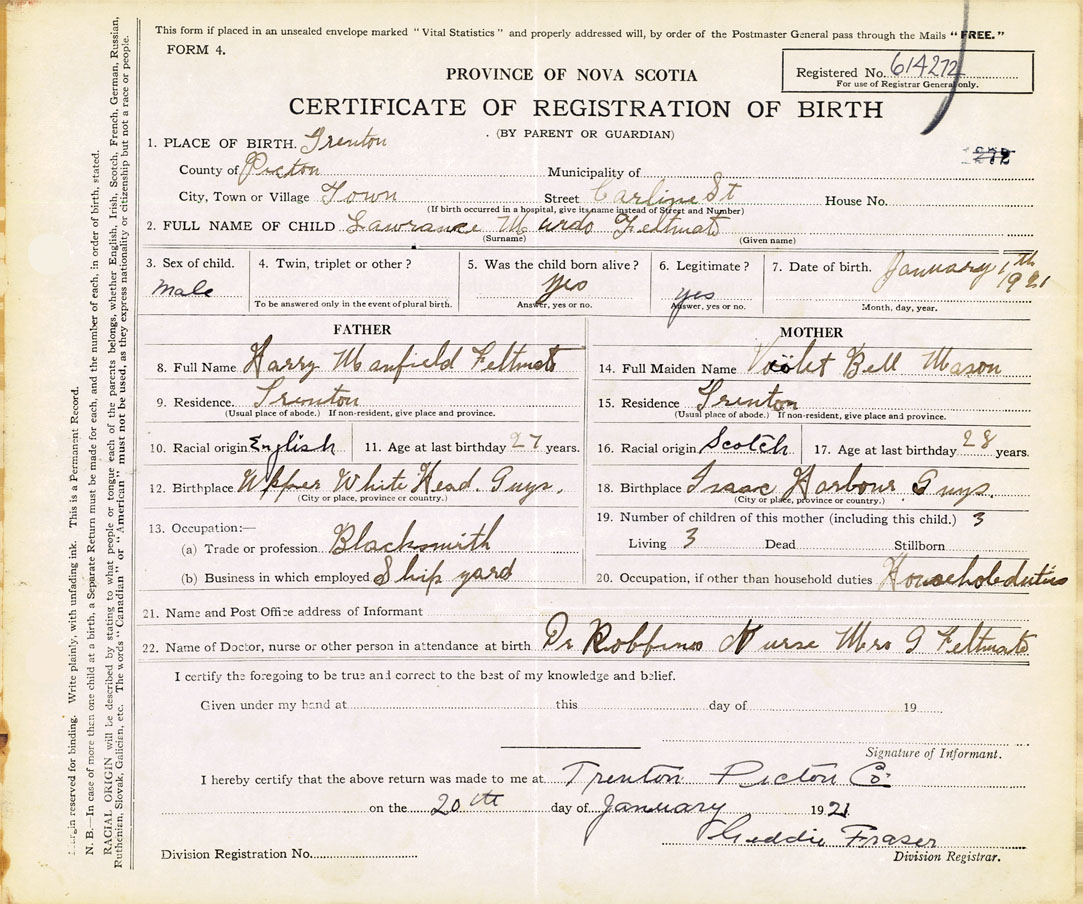 This form if placed in an unsealed envelope marked "Vital Statistics" and properly addressed will, by order of the Postmaster General pass through the Mails "FREE."
FORM 4.
Registered No. 614272
For use of Registrar General only.
PROVINCE OF NOVA SCOTIA
CERTIFICATE OF REGISTRATION OF BIRTH
(BY PARENT OR GUARDIAN)
1. PLACE OF BIRTH. Trenton
1272
County of Picton Municipality of
City, Town or Village Town Street Carline St House No.
(If birth occurred in a hospital, give its name instead of Street and Number)
2. FULL NAME OF CHILD Lawrance Murdo Feltmate
(Surname) (Given name)
3. Sex of child. 4. Twin, triplet or other? 5. Was the child born alive? 6. Legitimate? 7. Date of birth. January 1th
male yes yes 1921
To be answered only in the event of plural birth. Answer, yes or no. Answer, yes or no. Month, day, year.
FATHER MOTHER
8. Full Name Harry Manfield Feltmate 14. Full Maiden Name Voilet Bell Mason
9. Residence. Trenton 15. Residence Trenton
(Usual place of abode.) If non-resident, give place and province. (Usual place of abode.) If non-resident, give place and province.
10. Racial origin English 11. Age at last birthday 27 years. 16. Racial origin Scotch 17. Age at last birthday 28 years.
12. Birthplace Upper White Head. Guys. 18. Birthplace Isaac Harbour Guys.
(City or place, province or country.) (City or place, province or country.)
13. Occupation:— 19. Number of children of this mother (including this child.) 3
(a) Trade or profession Blacksmith Living 3 Dead Stillborn
(b) Business in which employed Ship yard 20. Occupation, if other than household duties Householdduties
21. Name and Post Office address of Informant
22. Name of Doctor, nurse or other person in attendance at birth Dr Robbins Nurse Mrs G Feltmate
I certify the foregoing to be true and correct to the best of my knowledge and belief.
Given under my hand at this day of 19
Signature of Informant.
I hereby certify that the above return was made to me at Trenton Picton Co.
on the 20th day of January 1921
Geddie Fraser
Division Registration No. Division Registrar.
Margin reserved for binding. Write plainly, with unfading ink. This is a Permanent Record.
N. B.—In case of more than one child at a birth, a Separate Return must be made for each, and the number of each, in order of birth, stated.
RACIAL ORIGIN will be described by stating to what people or tongue each of the parents belongs, whether English, Irish, Scotch, French, German, Russian,
Ruthenian, Slovak, Galician, etc. The words "Canadian" or "American" must not be used, as they express nationality or citizenship but not a race or people.